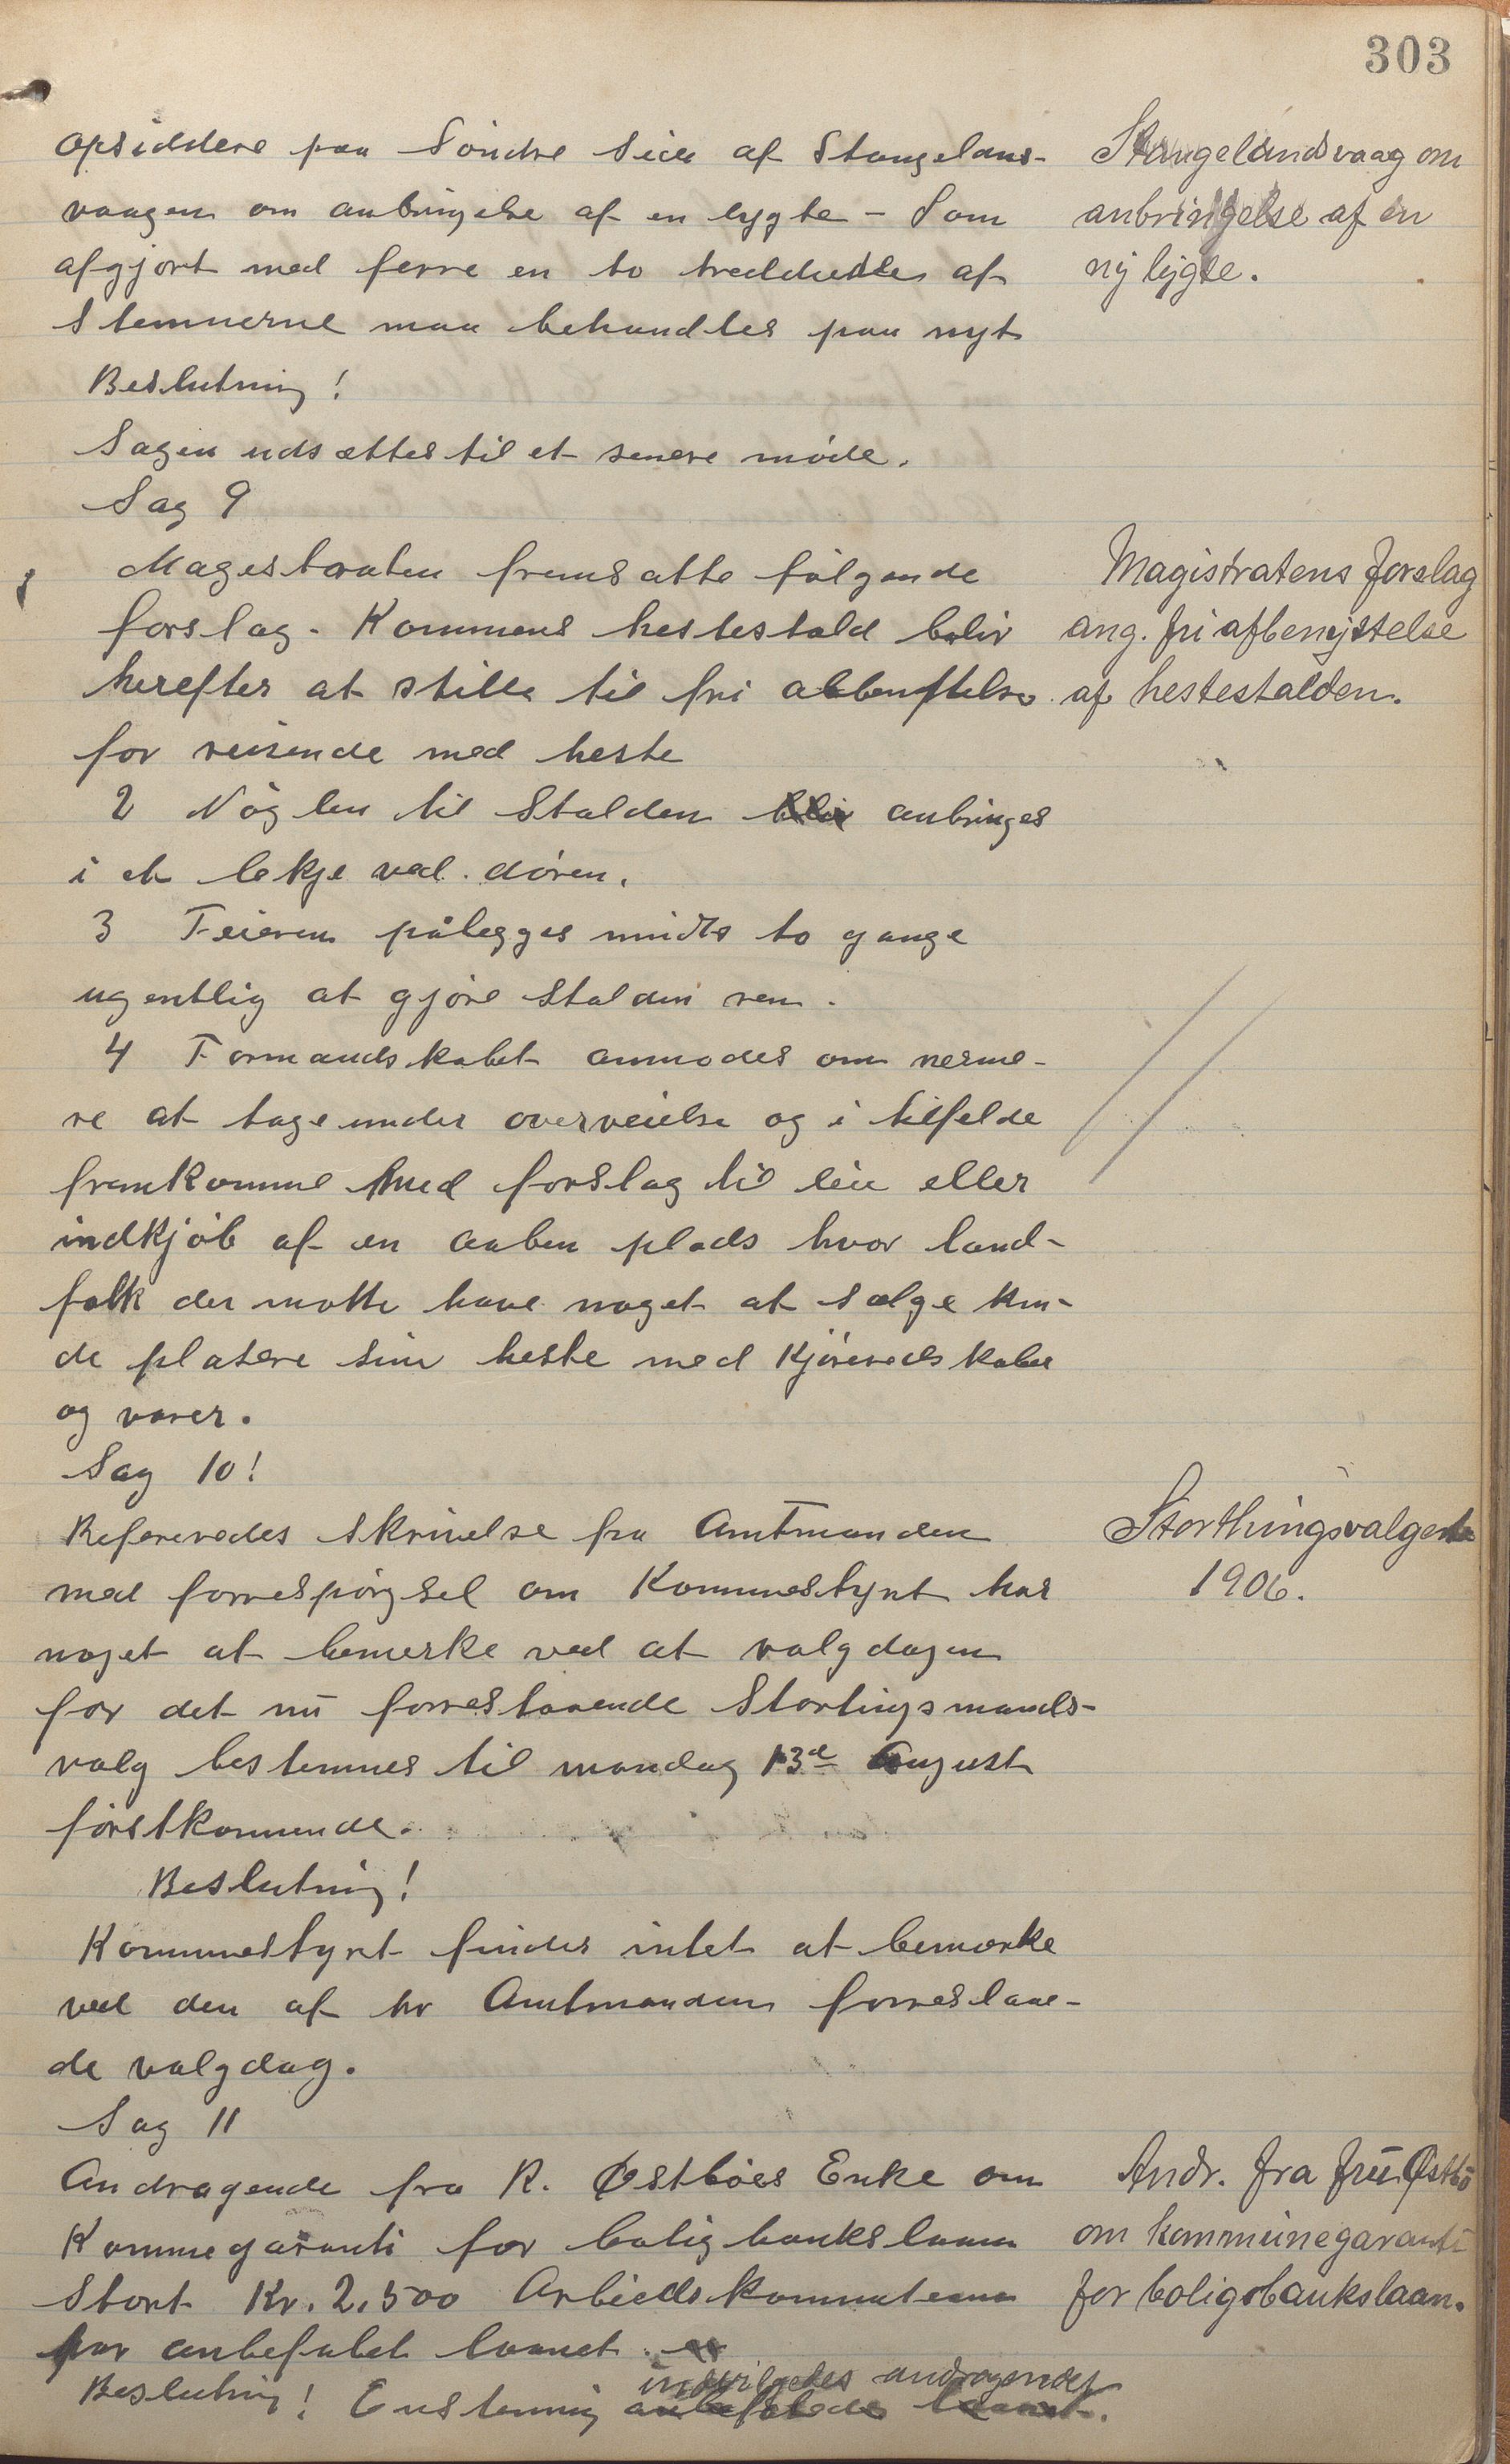 303
opsiddere paa Söndre Side af Stangelans-
vaagen om anbringelse af en lygte - Som
afgjort med ferre en to treddeles af
Stemnerne maa behandles paa nyt
Beslutning!
Sagen udsættes til et senere möde.
Sag 9
Magestraten fremsatte fölgende
forslag. Kommens hestestald bliv
herefter at stille til fri
for reisende med heste
2 Nöglen til Stalden anbringes
i et lekje ved dören.
3 Feieren pålegges mindst to gange
ugentlig at gjöre Stalden ren.
4 Formandskabet anmodes om nerme-
re at tage under overveielse og i tilfelde
fremkomme med forslag til leie eller
indkjöb af en aaben plads hvor land-
folk der motte have noget at sælge kun-
de plasere sine heste med Kjöreredskaber
og varer.
Sag 10!
Refereredes Skrivelse fra Amtmanden
med forrespörgsel om Kommestyret har
noget at bemerke ved at valgdagen
for det nu forrestaaende Stortingsmands-
valg bestemmes til mandag 13d August
förstkommende.
Beslutning!
Kommestyret finder intet at bemerke
ved den af hr Amtmanden forreslaae-
de valgdag.
Sag 11
Andragende fra R. Østböes Enke om
Kommegaranti for boligbankslaan
Stort Kr. 2,500 Arbiedskommiteen
har anbefalet laanet
indvilgedes andragendet
Beslutning! Enstemig anbefaledes laanet.
Stangelandsvaag om
anbringelse af en
ny lygte.
Magistratens forslag
ang. fri afbenyttelse
af hestestalden.
Storthingsvalgene
1906.
Andr. fra fru Østbö
om kommunegaranti
for boligsbankslaan.